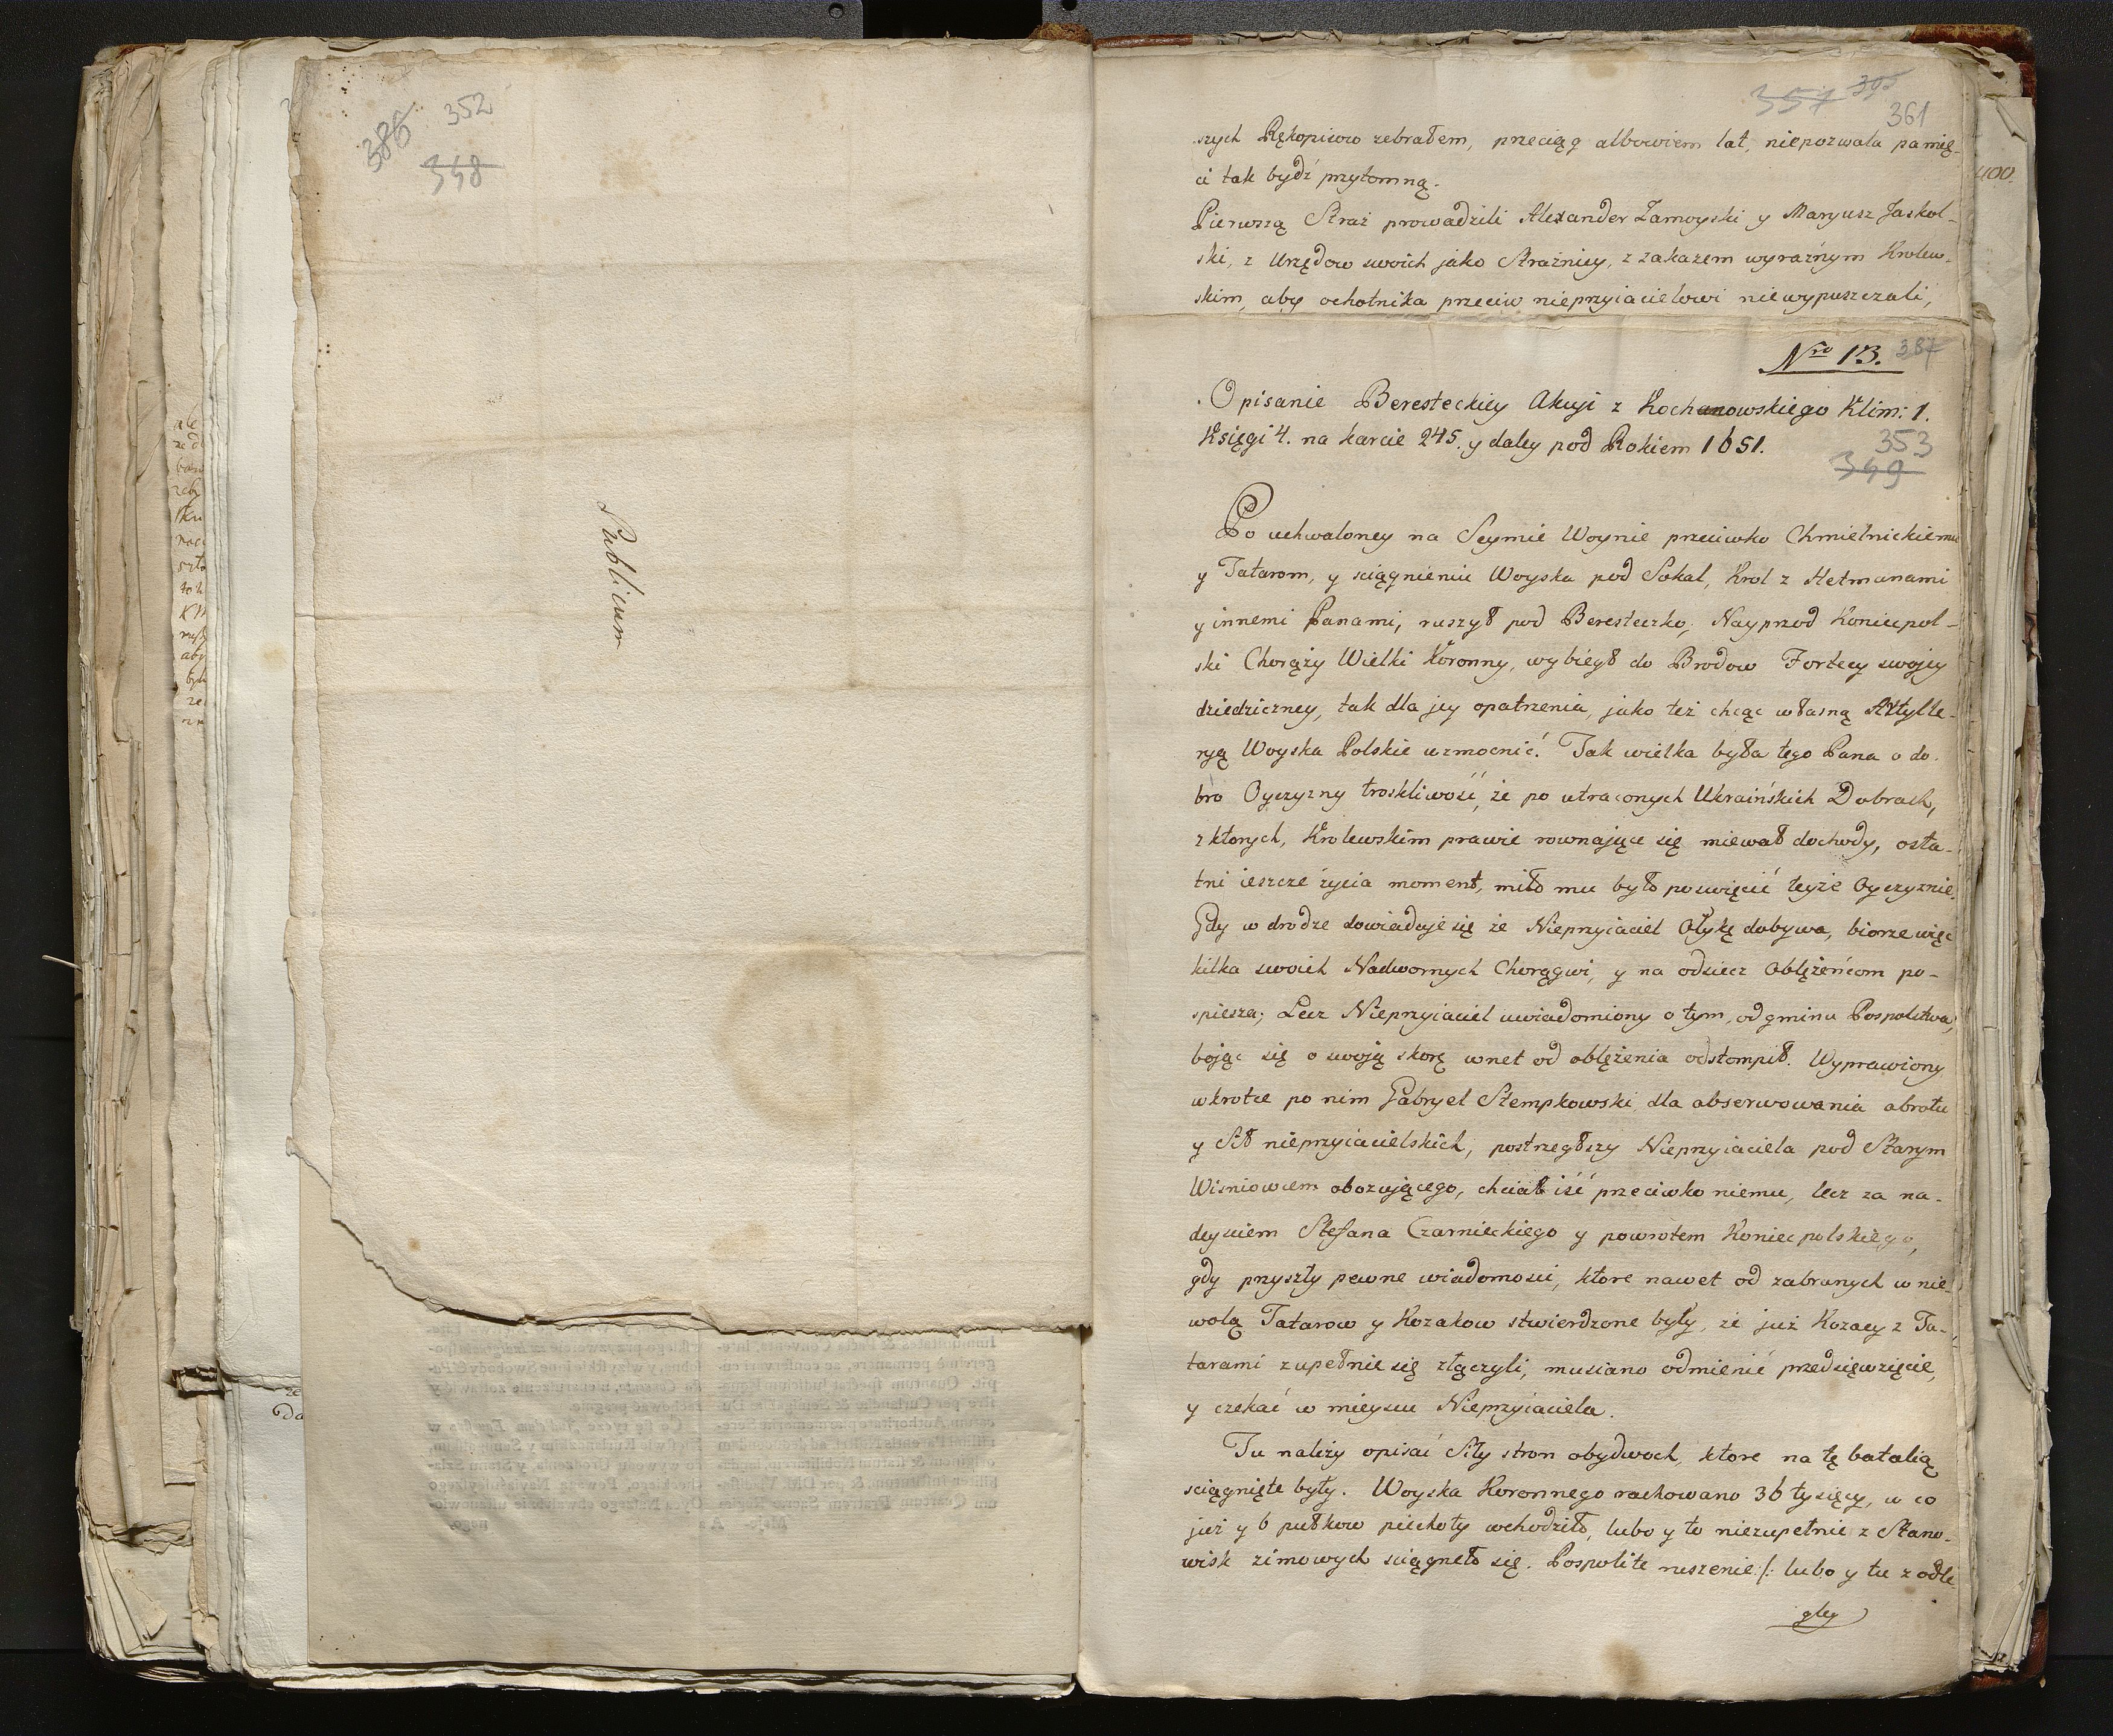 386 352
348
Publicum
357 395
361
400.
szych Rękopisow zebrałem, przeciąg albowiem lat, niepozwala pamię-
ci tak bydź przytomną.
Pierwszą Straż prowadzili Alexander Zamoyski y Maryusz Jaskol-
ski, z Urzędow swoich jako Strażnicy, z zakazem wyraźnym Krolew-
skim, aby ochotnika przeciw nieprzyiacielowi niewypuszczali,
Nro 13. 387
Opisanie Beresteckiey Akcyi z Kochanowskiego Klim: 1.
Księgi 4. na karcie 245. y daley pod Rokiem 1651.
353
349
Po uchwaloney na Seymie Woynie przeciwko Chmielnickiemu
y Tatarom, y sciągnieniu Woyska pod Sokal, Krol z Hetmanami
y innemi Panami, ruszył pod Beresteczko, Nayprzod Koniecpol-
ski Chorąży Wielki Koronny, wybiegł do Brodow Fortecy swojey
dziedziczney, tak dla jey opatrzenia, jako też chcąc własną Artylle-
ryą Woyska Polskie wzmocnić. Tak wielka była tego Pana o do-
bro Oyczyzny troskliwość, że po utraconych Ukraińskich Dobrach,
z ktorych, Krolewskim prawie rownające się miewał dochody, osta-
tni ieszcze życia moment, miło mu było poswięcić teyże Oyczyznie.
Gdy w drodze dowiaduje się że Nieprzyiaciel Ołykę dobywa, biorze więc
kilka swoich Nadwornych Chorągwi, y na odsiecz Oblężeńcom po-
spiesza; Lecz Nieprzyiaciel uwiadomiony o tym, od gminu Pospolstwa,
bojąc się o swoją skorę wnet od oblężenia odstompił. Wyprawiony
wkrotce po nim Gabryel Stempkowski dla obserwowania obrotu
y Sił nieprzyiacielskich, postrzegłszy Nieprzyiaciela pod Starym
Wisniowcem obozującego, chciał iść przeciwko niemu, lecz za na-
deysciem Stefana Czarnieckiego y powrotem Koniecpolskiego,
gdy przyszły pewne wiadomosci, ktore nawet od zabranych w nie-
wolą Tatarow y Kozakow stwierdzone były, że już Kozacy z Ta-
tarami zupełnie się złączyli, musiano odmienić przedsięwzięcie,
y czekać w mieyscu Nieprzyiaciela.
Tu należy opisać Siły stron obydwoch, ktore na tę batalią
sciągnięte były. Woyska Koronnego rachowano 36 tysięcy, w co
już y 6 pułkow piechoty wchodziło, lubo y to niezupełnie z Stano-
wisk zimowych sciągneło się. Pospolite ruszenie /: lubo y tu z odle
gley